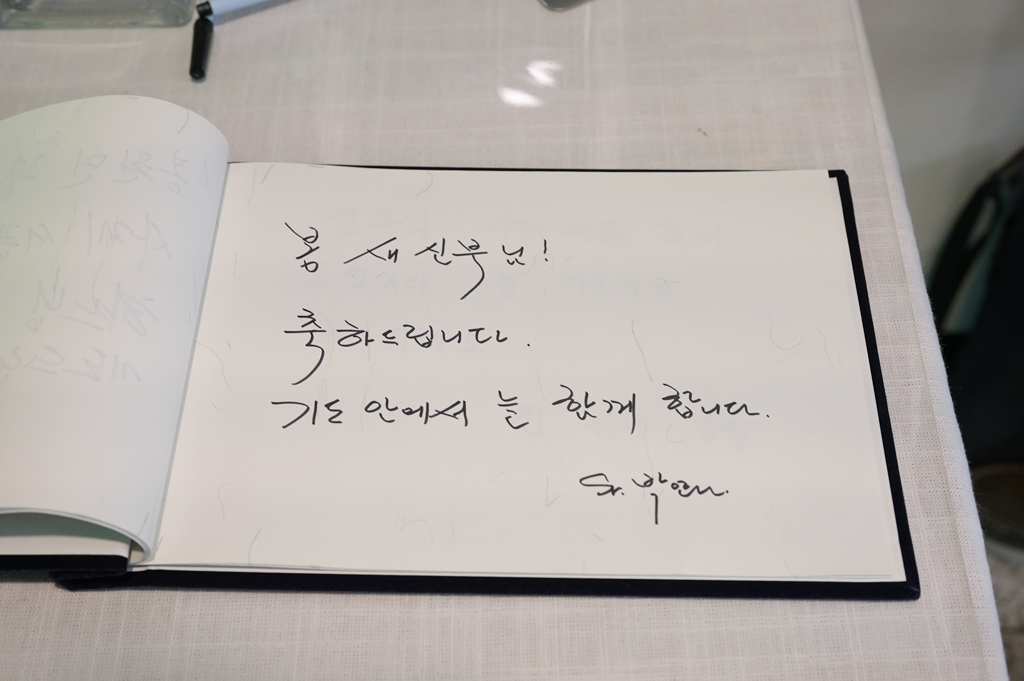 봄 새 신부님!
축하드립니다.
기도 안에서 늘 함께 합니다.
Sr. 박